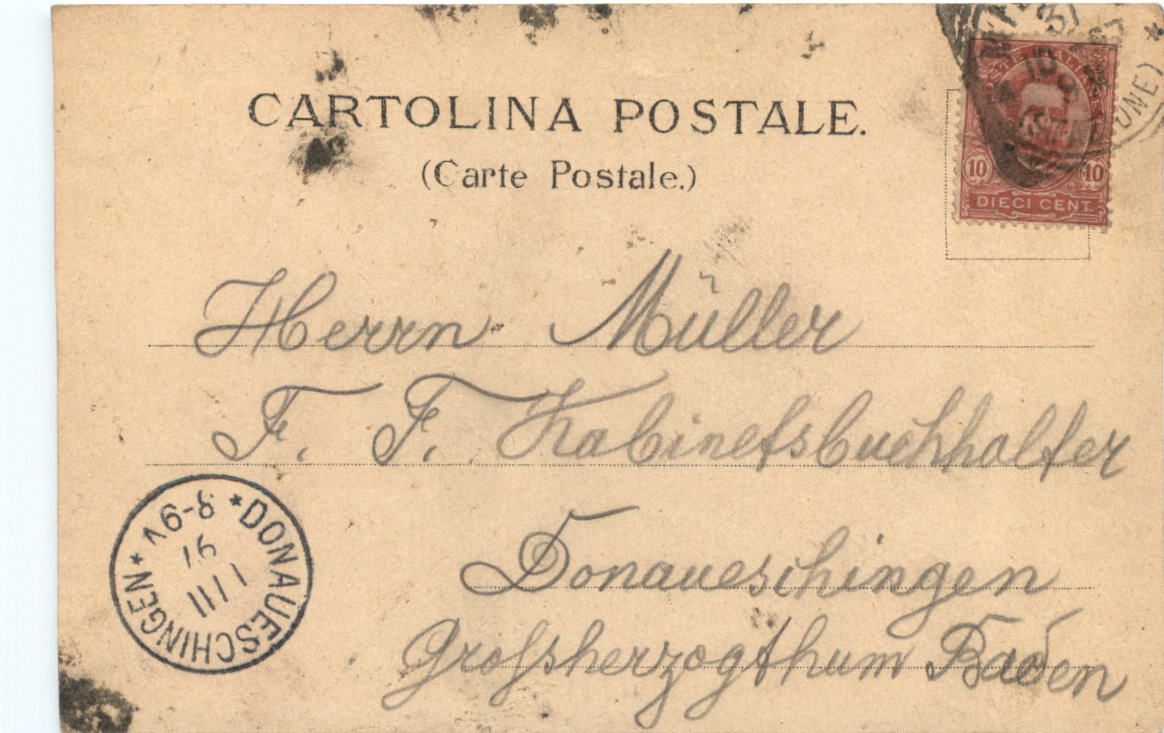 CARTOLINA POSTALE.
(Carte Postale.)
POSTE ITALIANE
10 10
DIECI CENT.
Herrn Müller
F. F. Kabinetsbuchhalter
Donaueschingen
Großherzogthum Baden
*DONAUESCHINGEN*
1 11
97
8-9V